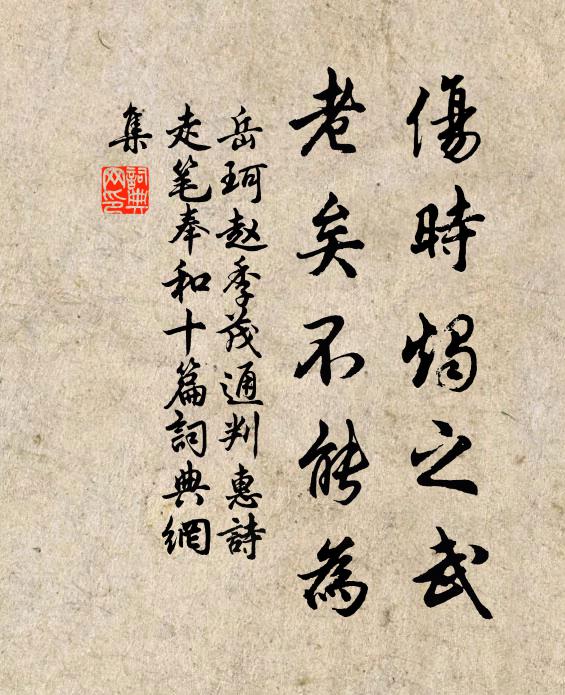 傷時燭之武
老矣不能為
岳珂赵季茂通判惠詩
走笔奉和十篇詞典網
集
詞典网印